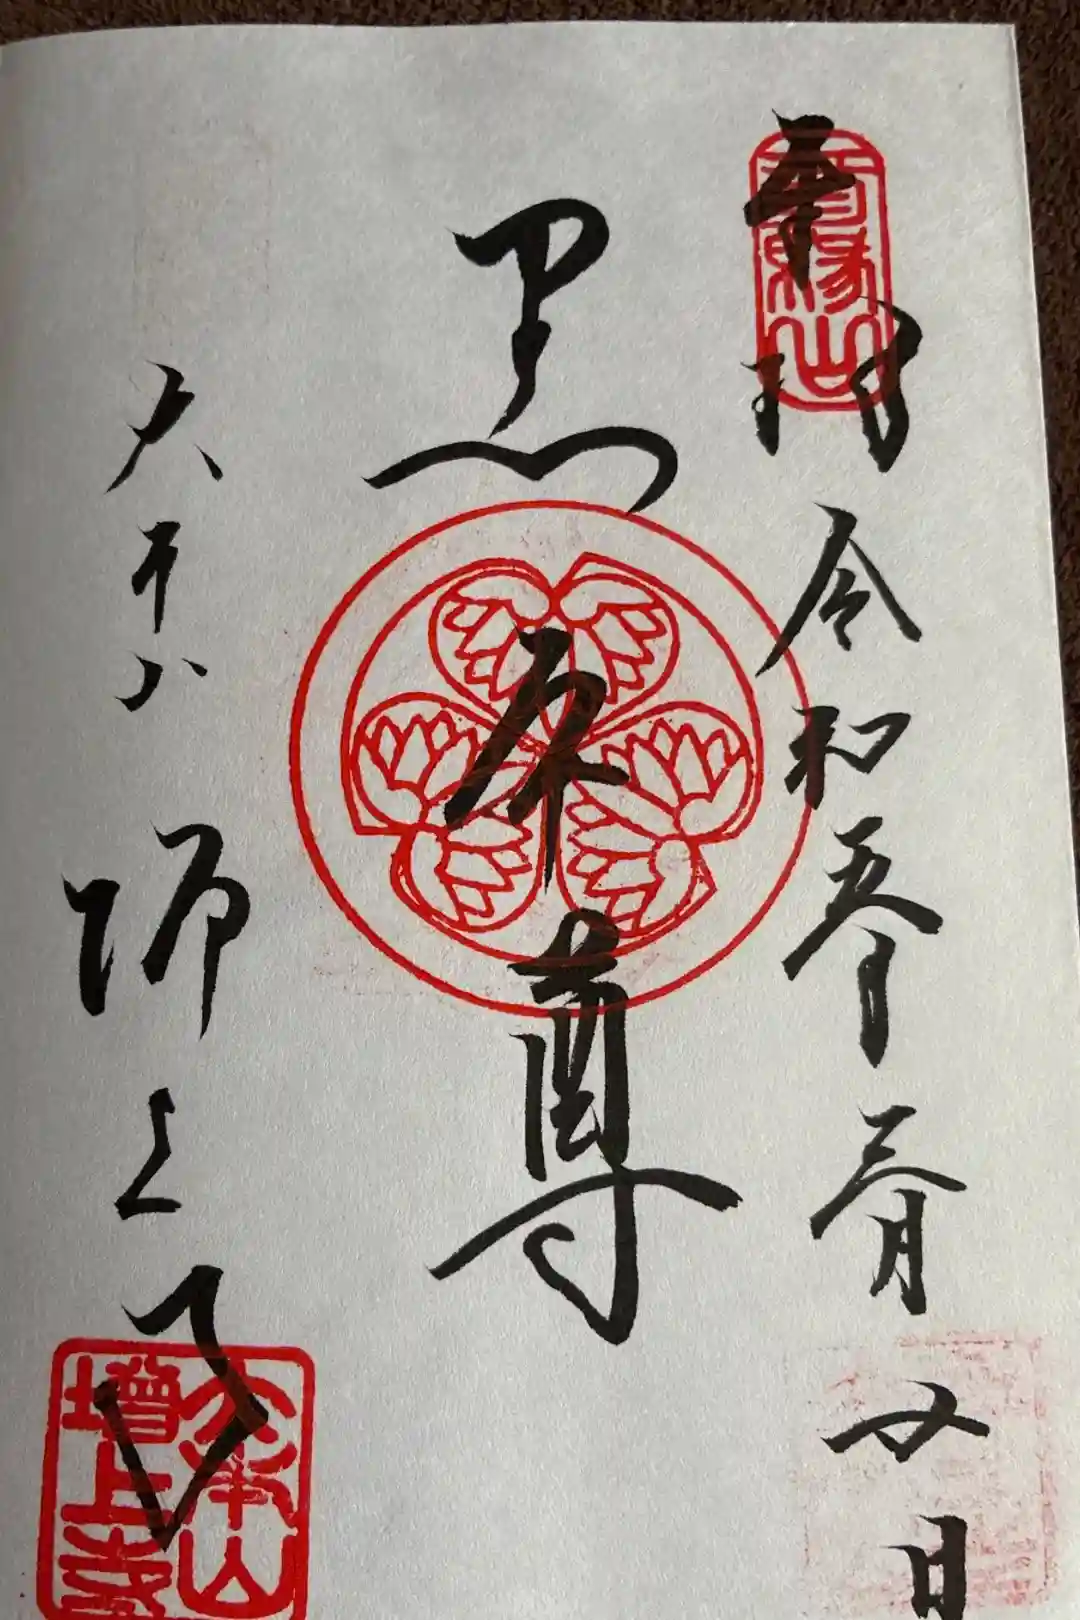 奉拝
令和五年三月廿日
黒本尊
大本山
増上寺
三縁山
大本山
増上寺